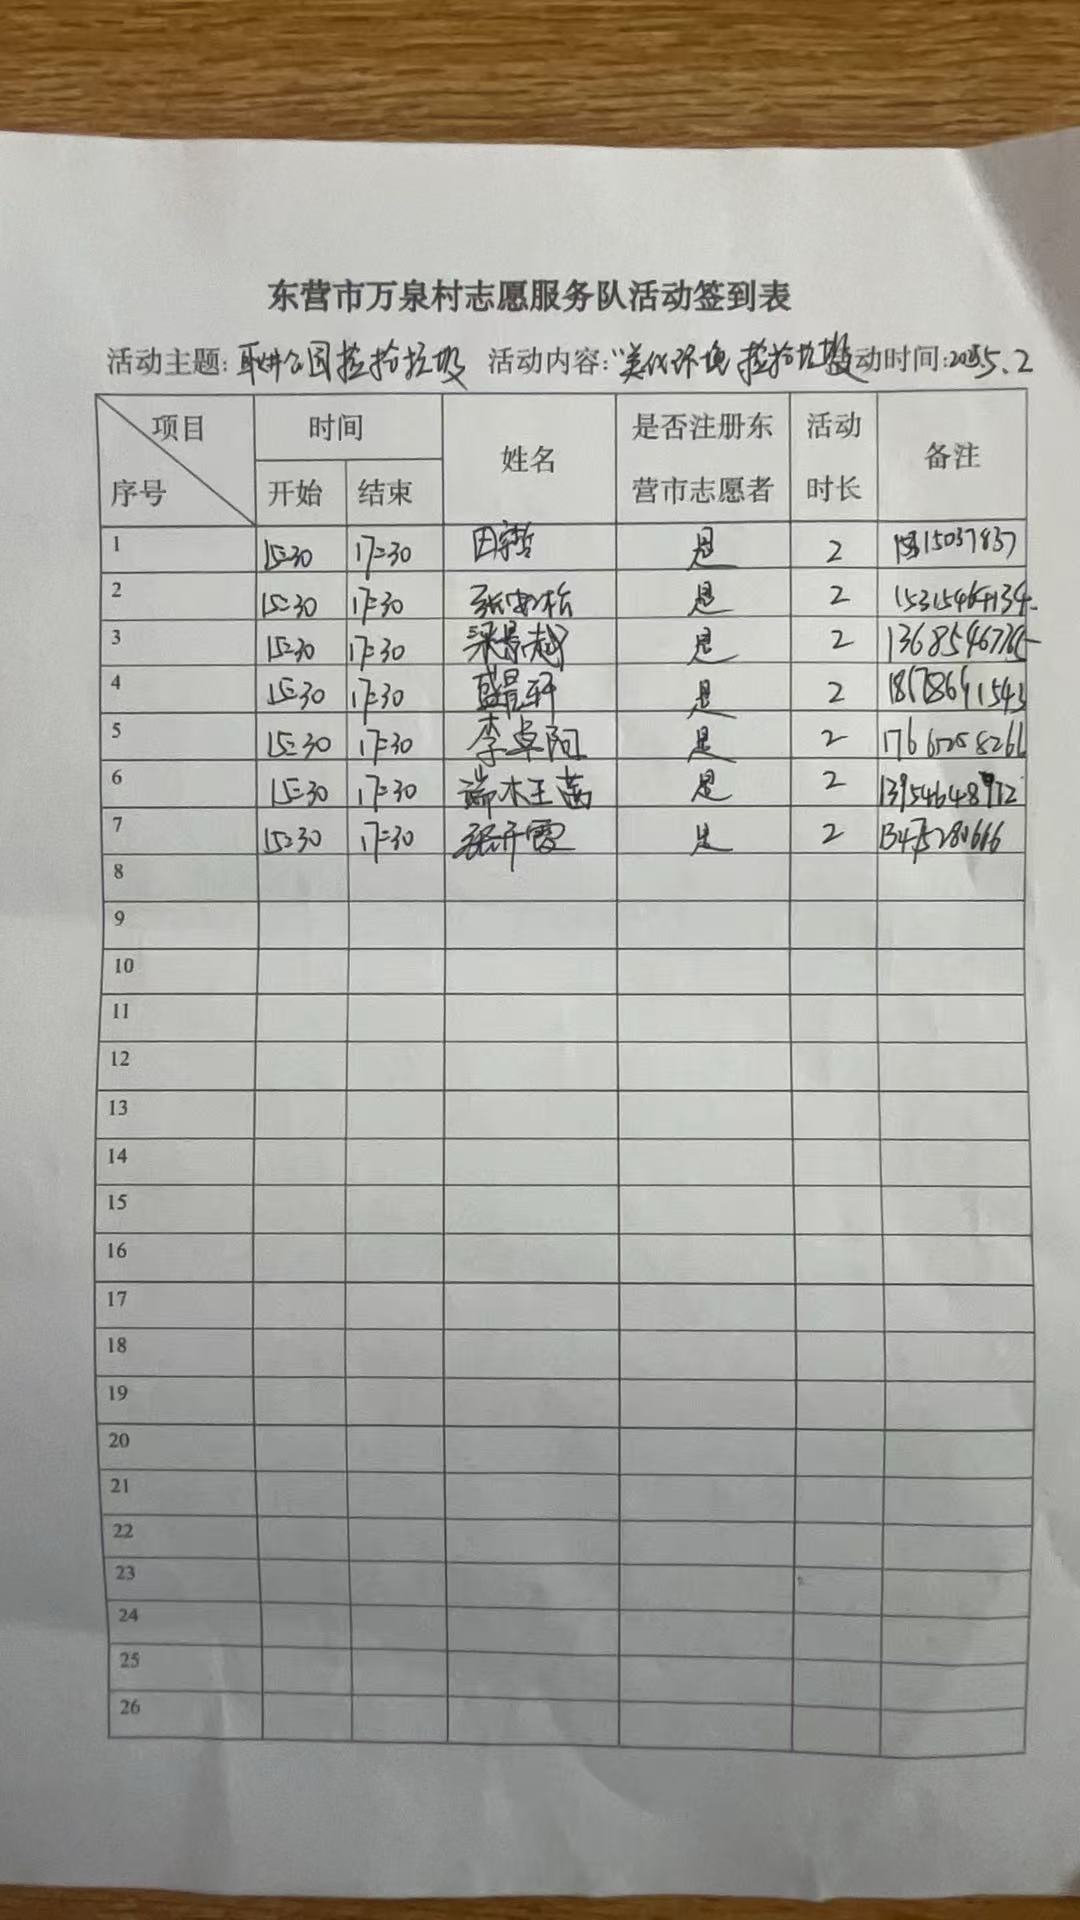 东营市万泉村志愿服务队活动签到表
活动主题: 耿井公园捡拾垃圾 活动内容: "美化环境 捡拾垃圾 动时间: 2025.5.2
项目 时间 姓名 是否注册东营市志愿者 活动时长 备注
序号 开始 结束
1 15:30 17:30 是 2
2 15:30 17:30 是 2
3 15:30 17:30 梁景越 是 2
4 15:30 17:30 是 2
5 15:30 17:30 李卓阿 是 2 17665258266
6 15:30 17:30 端木王茜 是 2
7 15:30 17:30 是 2 13475280666
8
9
10
11
12
13
14
15
16
17
18
19
20
21
22
23
24
25
26